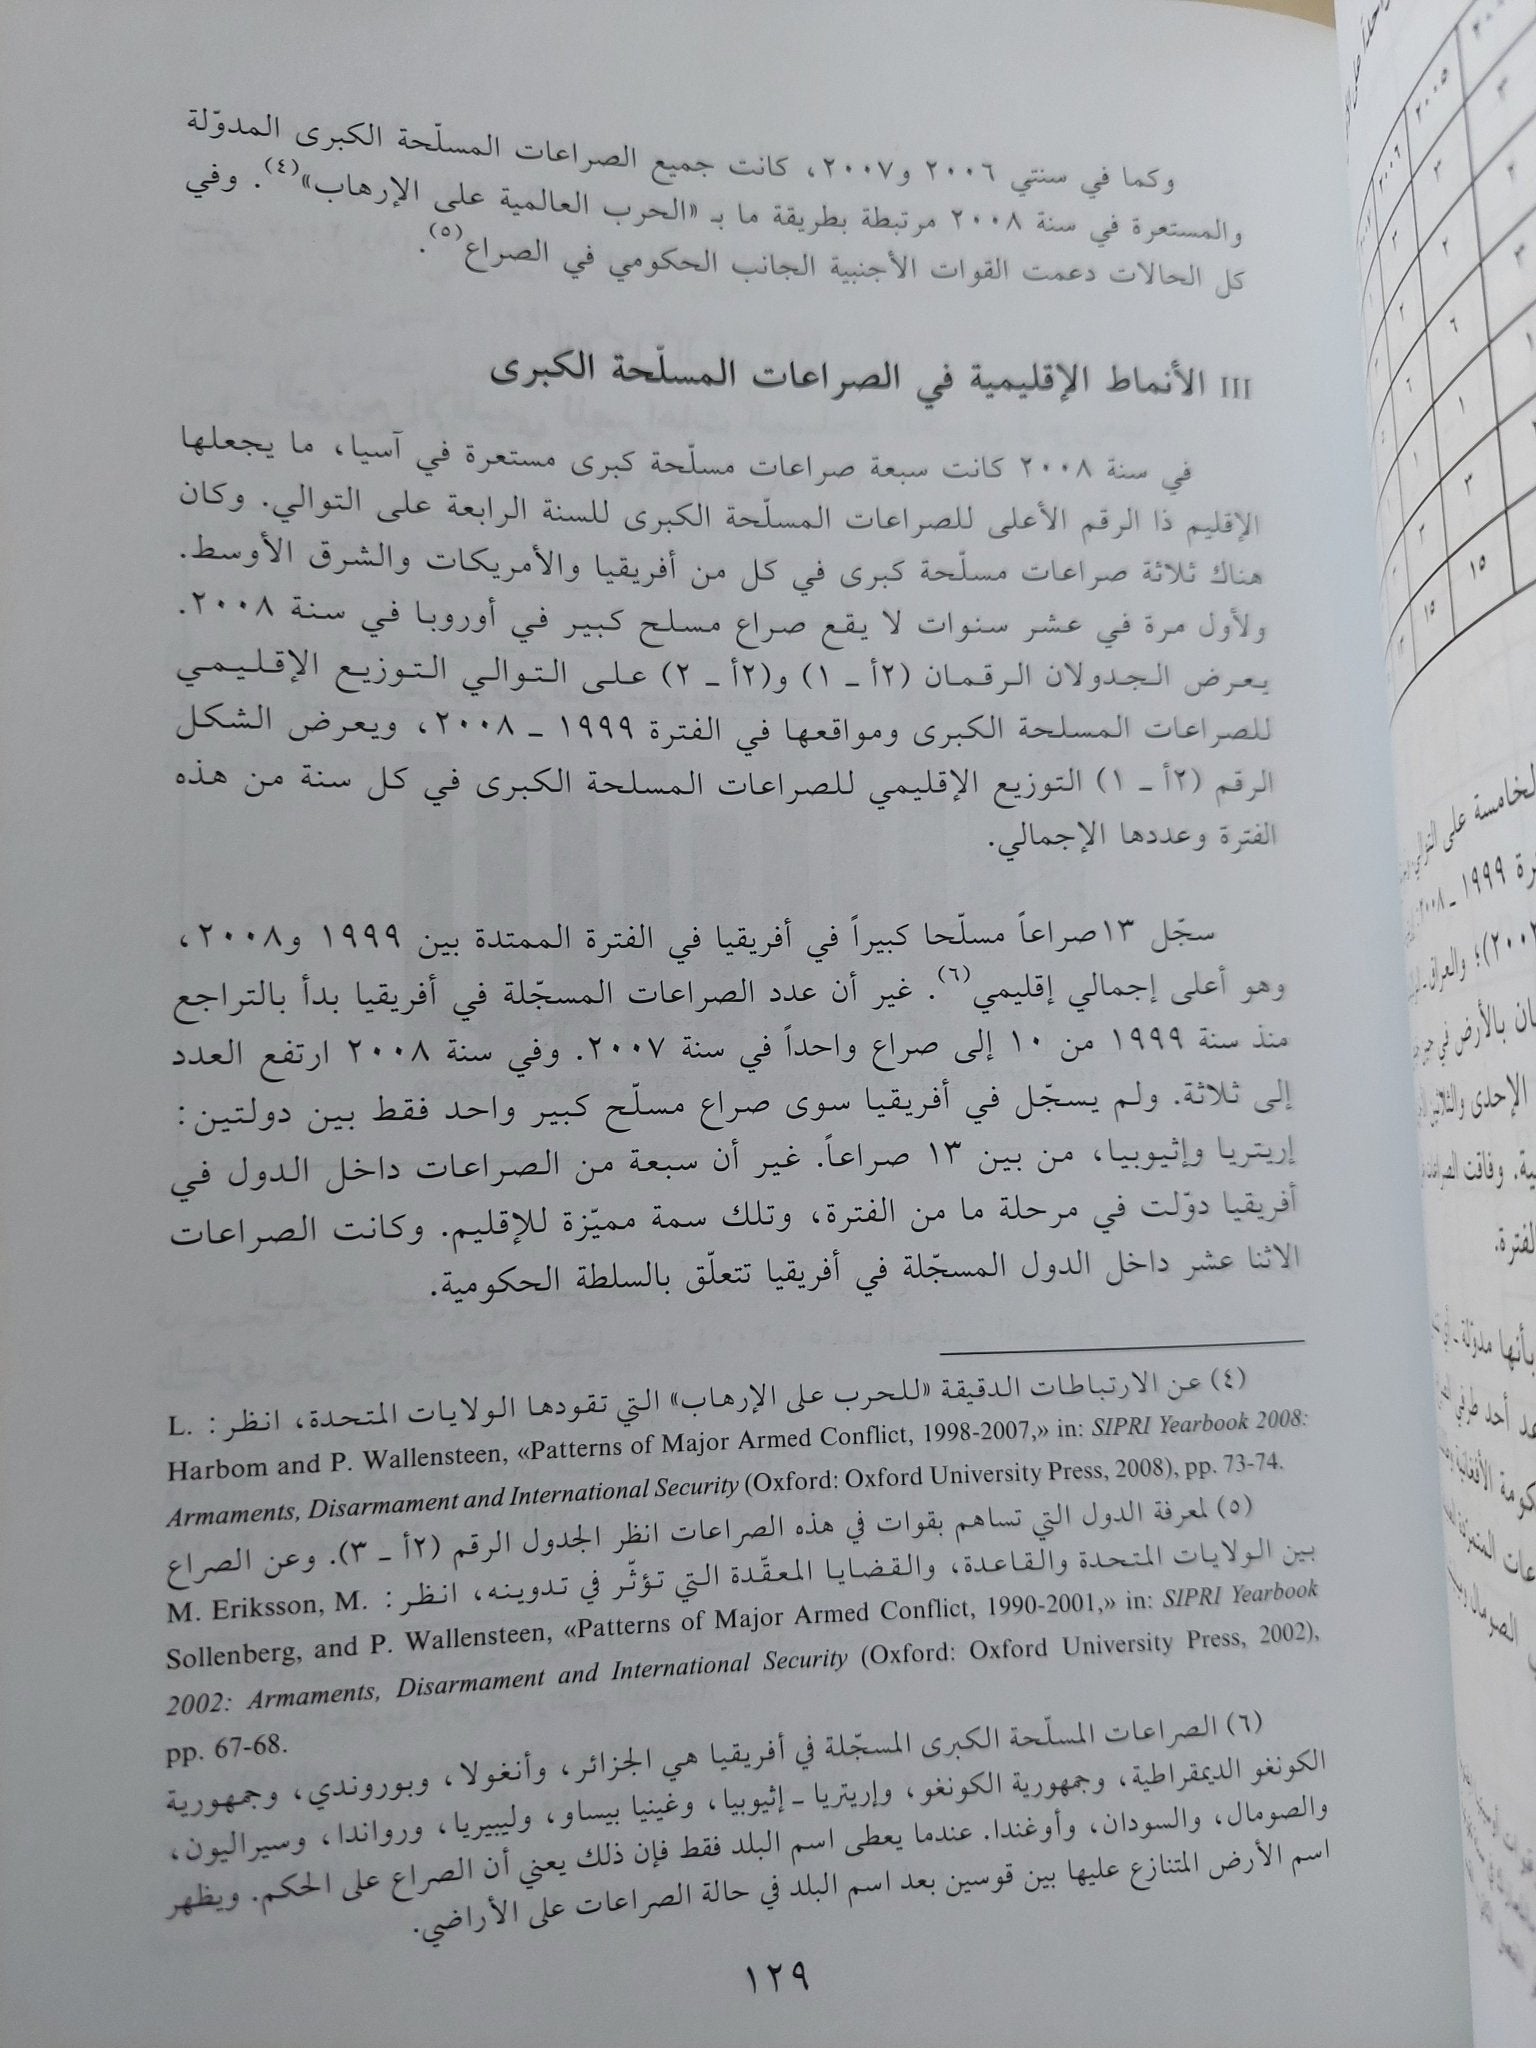 وكما في سنتي ٢٠٠٦ و٢٠٠٧، كانت جميع الصراعات المسلّحة الكبرى المدوّلة
والمستعرة في سنة ٢٠٠٨ مرتبطة بطريقة ما بـ «الحرب العالمية على الإرهاب»(٤). وفي
كل الحالات دعمت القوات الأجنبية الجانب الحكومي في الصراع(٥).
III الأنماط الإقليمية في الصراعات المسلّحة الكبرى
في سنة ٢٠٠٨ كانت سبعة صراعات مسلّحة كبرى مستعرة في آسيا، ما يجعلها
الإقليم ذا الرقم الأعلى للصراعات المسلّحة الكبرى للسنة الرابعة على التوالي. وكان
هناك ثلاثة صراعات مسلّحة كبرى في كل من أفريقيا والأمريكات والشرق الأوسط.
ولأول مرة في عشر سنوات لا يقع صراع مسلح كبير في أوروبا في سنة ٢٠٠٨.
يعرض الجدولان الرقمان (٢أ ـ ١) و(٢أ ـ ٢) على التوالي التوزيع الإقليمي
للصراعات المسلحة الكبرى ومواقعها في الفترة ١٩٩٩ ـ ٢٠٠٨، ويعرض الشكل
الرقم (٢أ ـ ١) التوزيع الإقليمي للصراعات المسلحة الكبرى في كل سنة من هذه
الفترة وعددها الإجمالي.
سجّل ١٣صراعاً مسلّحا كبيراً في أفريقيا في الفترة الممتدة بين ١٩٩٩ و٢٠٠٨،
وهو أعلى إجمالي إقليمي(٦). غير أن عدد الصراعات المسجّلة في أفريقيا بدأ بالتراجع
منذ سنة ١٩٩٩ من ١٠ إلى صراع واحداً في سنة ٢٠٠٧. وفي سنة ٢٠٠٨ ارتفع العدد
إلى ثلاثة. ولم يسجّل في أفريقيا سوى صراع مسلّح كبير واحد فقط بين دولتين:
إريتريا وإثيوبيا، من بين ١٣ صراعاً. غير أن سبعة من الصراعات داخل الدول في
أفريقيا دوّلت في مرحلة ما من الفترة، وتلك سمة مميّزة للإقليم. وكانت الصراعات
الاثنا عشر داخل الدول المسجّلة في أفريقيا تتعلّق بالسلطة الحكومية.
(٤) عن الارتباطات الدقيقة «للحرب على الإرهاب» التي تقودها الولايات المتحدة، انظر: L.
Harbom and P. Wallensteen, «Patterns of Major Armed Conflict, 1998-2007,» in: SIPRI Yearbook 2008:
Armaments, Disarmament and International Security (Oxford: Oxford University Press, 2008), pp. 73-74.
(٥) لمعرفة الدول التي تساهم بقوات في هذه الصراعات انظر الجدول الرقم (٢أ ـ ٣). وعن الصراع
بين الولايات المتحدة والقاعدة، والقضايا المعقّدة التي تؤثّر في تدوينه، انظر: M. Eriksson, M.
Sollenberg, and P. Wallensteen, «Patterns of Major Armed Conflict, 1990-2001,» in: SIPRI Yearbook
2002: Armaments, Disarmament and International Security (Oxford: Oxford University Press, 2002),
pp. 67-68.
(٦) الصراعات المسلّحة الكبرى المسجّلة في أفريقيا هي الجزائر، وأنغولا، وبوروندي، وجمهورية
الكونغو الديمقراطية، وجمهورية الكونغو، وإريتريا ـ إثيوبيا، وغينيا بيساو، وليبيريا، ورواندا، وسيراليون،
والصومال، والسودان، وأوغندا. عندما يعطى اسم البلد فقط فإن ذلك يعني أن الصراع على الحكم. ويظهر
اسم الأرض المتنازع عليها بين قوسين بعد اسم البلد في حالة الصراعات على الأراضي.
١٢٩